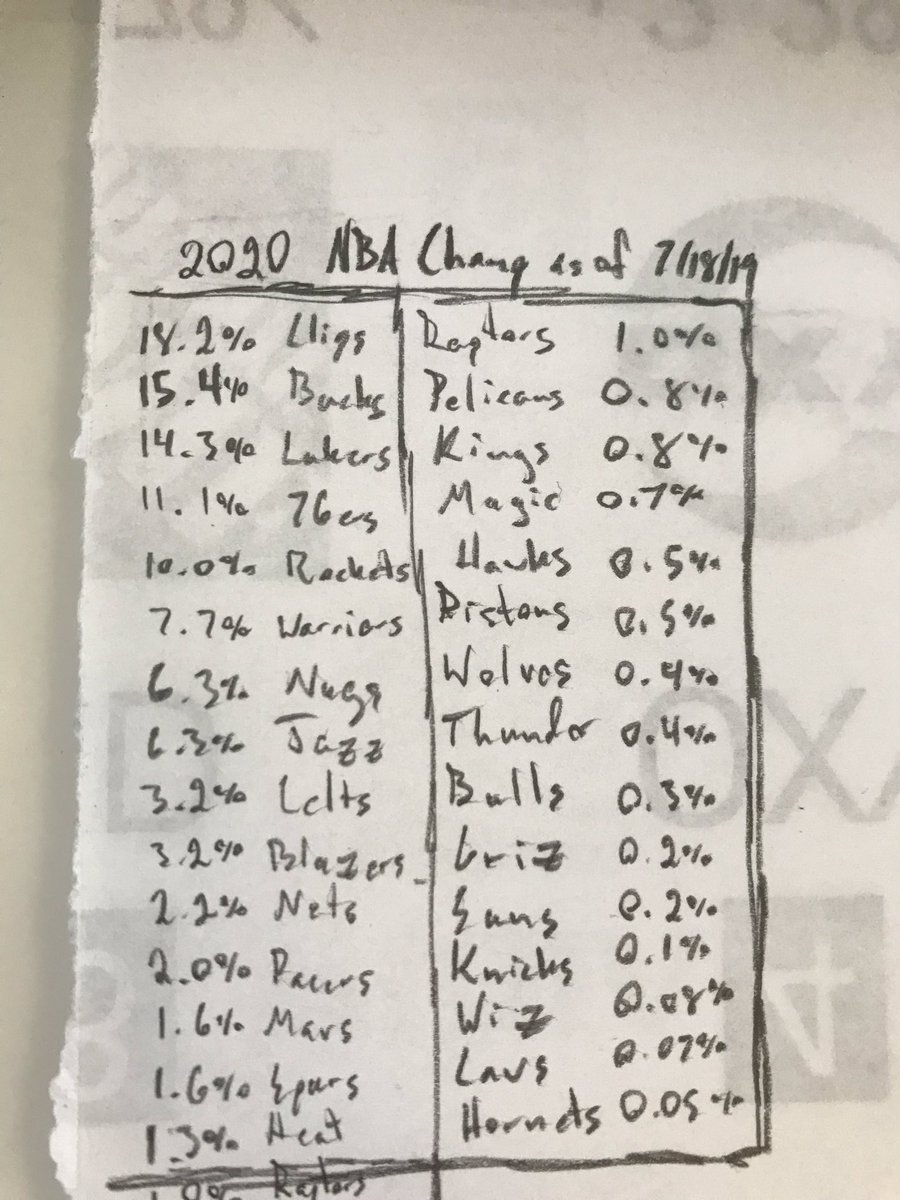 2020 NBA Champ as of 7/18/19
18.2% Clips
15.4% Bucks
14.3% Lakers
11.1% 76ers
10.0% Rockets
7.7% Warriors
6.3% Nugs
6.3% Jazz
3.2% Celts
3.2% Blazers
2.2% Nets
2.0% Pacers
1.6% Mavs
1.6% Spurs
1.3% Heat
Raptors
Raptors 1.0%
Pelicans 0.8%
Kings 0.8%
Magic 0.7%
Hawks 0.5%
Pistons 0.5%
Wolves 0.4%
Thunder 0.4%
Bulls 0.3%
Griz 0.2%
Suns 0.2%
Knicks 0.1%
Wiz 0.08%
Cavs 0.07%
Hornets 0.05%